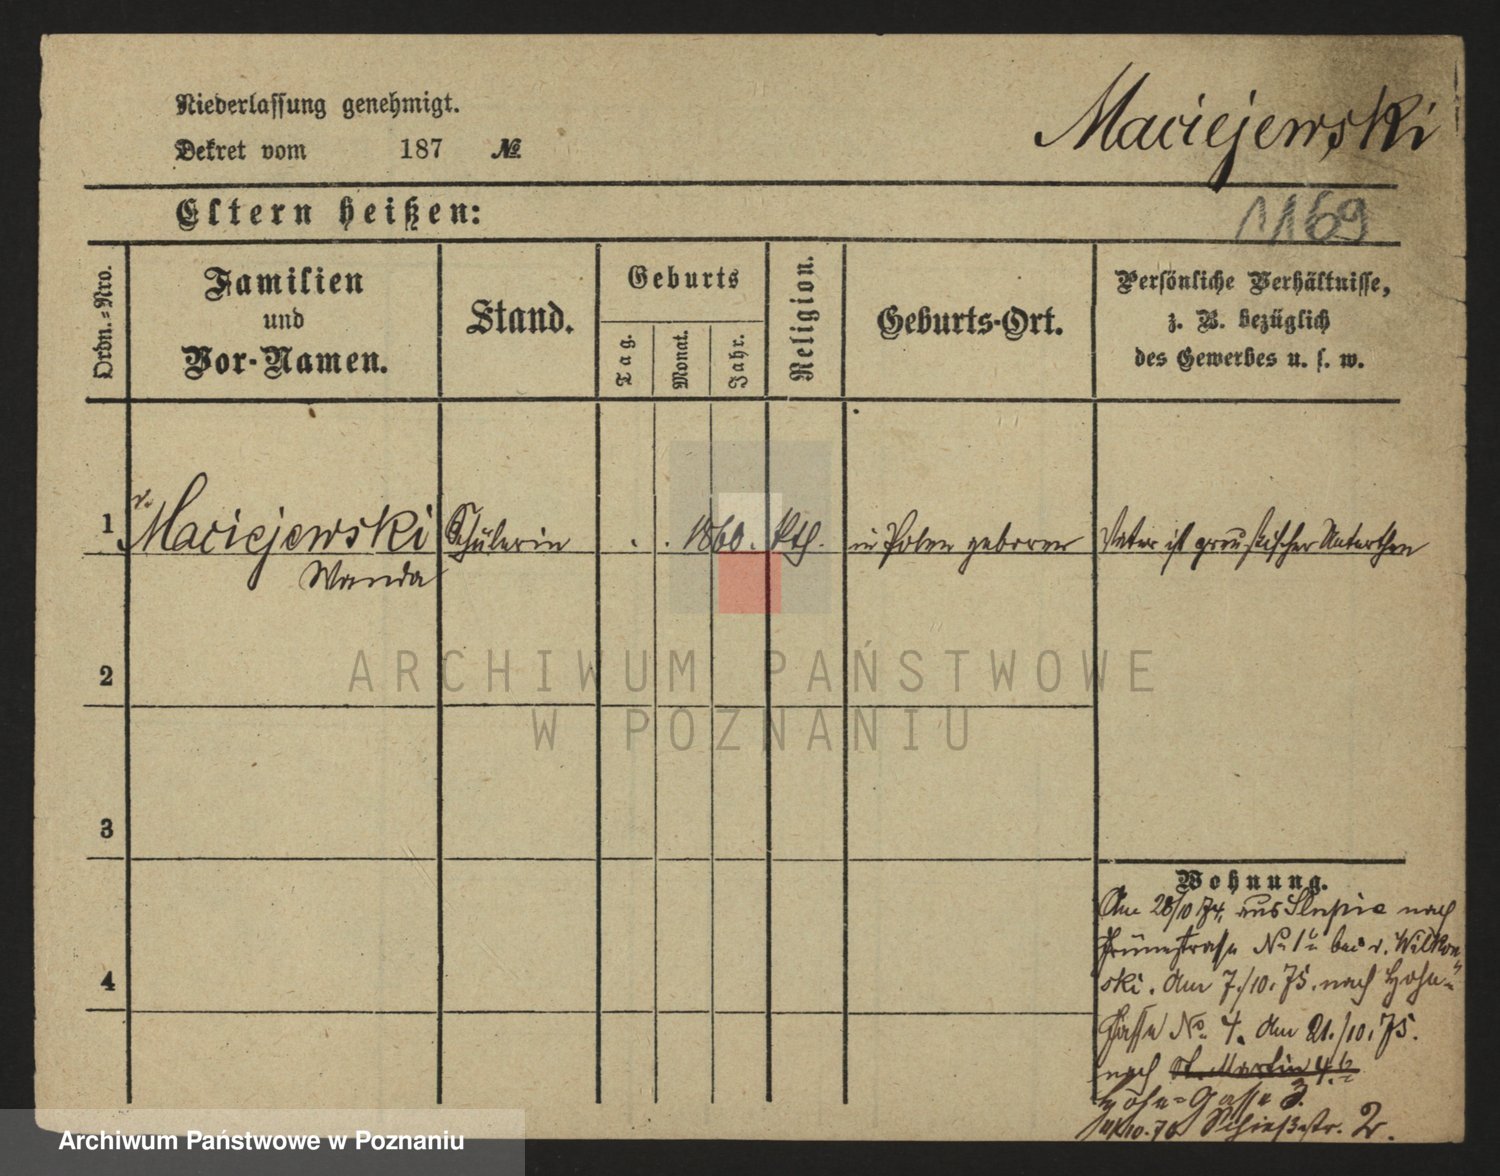 Niederlassung genehmigt.
Dekret vom 187 №
Maciejewski
Eltern heißen:
1169
Ordn.-Nro.
Familien
und
Vor-Namen.
Stand.
Geburts
Tag.
Monat.
Jahr.
Religion.
Geburts-Ort.
Persönliche Verhältnisse,
z. B. bezüglich
des Gewerbes u. s. w.
1 v. Maciejewski Schülerin . . 1860. Kth. in Polen geboren Vater ist preußischer Unterthan
Wanda
2
3
4
ARCHIWUM PAŃSTWOWE
W POZNANIU
Wohnung.
Am 28/10 74. aus Slupia nach
Grünestraße No 1 bei v. Wilkon-
ski. Am 7./10. 75. nach Hohe-
Gasse No. 4. Am 21./10. 75.
nach St. Martin 4.
Hohe-Gasse 3.
10. 76 Schießstr. 2.
Archiwum Państwowe w Poznaniu